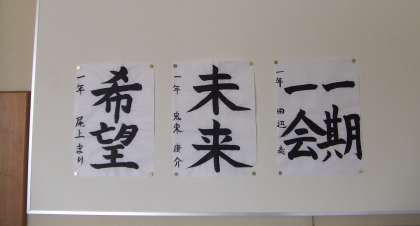 一期
一会
一年 田辺
未来
一年 恵来 康介
希望
一年 尾上 まり